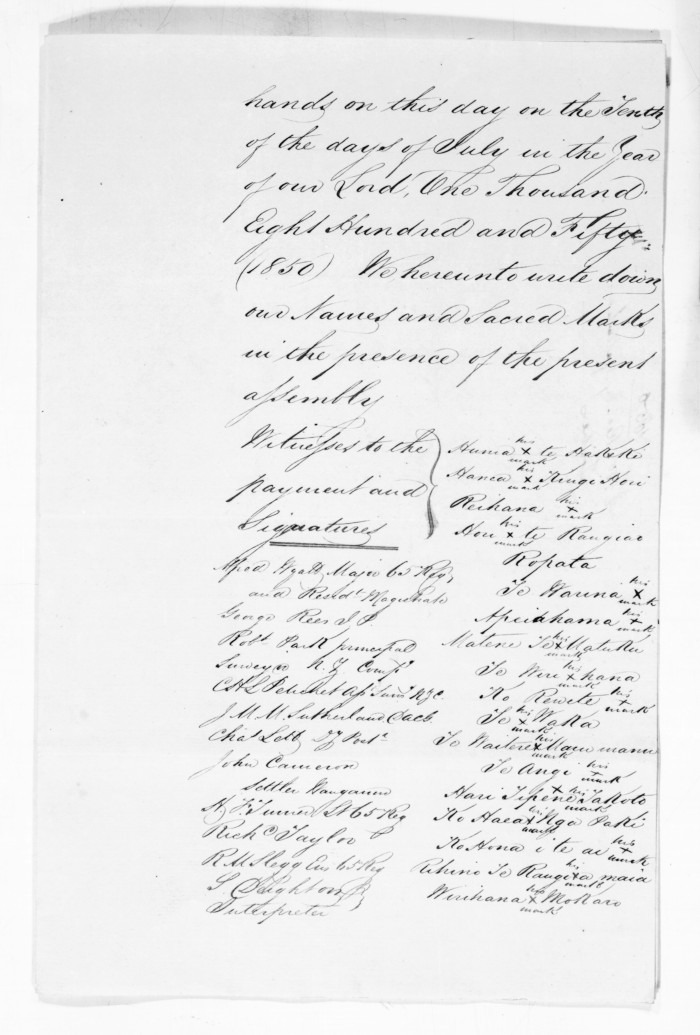 hands on this day on the Tenth
of the days of July in the Year
of our Lord, One Thousand
Eight Hundred and Fifty
(1850) We hereunto write down
our Names and Sacred Marks
in the presence of the present
assembly
Witnesses to the
payment and
Signatures
his
Huma x te Hakeke
mark
his
Hanea x Kingi Hori
mark
Reihana his x mark
his
Hori x te Rangiao
mark
Ropata
Te Waruna his x mark
Apiahama his x mark
his
Matene Te x Matuku
mark
his
Te Wiri x hana
mark
Ko Rewete his x mark
his
Te x Waka
mark
his
Te Waitere x Maumanu
mark
Te Angi his x mark
Hari Tipene x his mark Takoto
Ko Haea x Nga Paki
mark
Ko Hona i te ai his x mark
his
Rihino Te Rangi x a maia
mark
his
Wirihana x Mokaro
mark
Wyatt Major 65 Reg,
and Residt Magistrate
George Rees J P
Robt Park principal
Surveyor N. Z. Compy
J. M. M. Sutherland
John Cameron
Settler Wanganui
H. F. Turner Lt 65 Reg
Richd Taylor
R. M. Slegg Ens 65 Reg
S Deighton
Interpreter